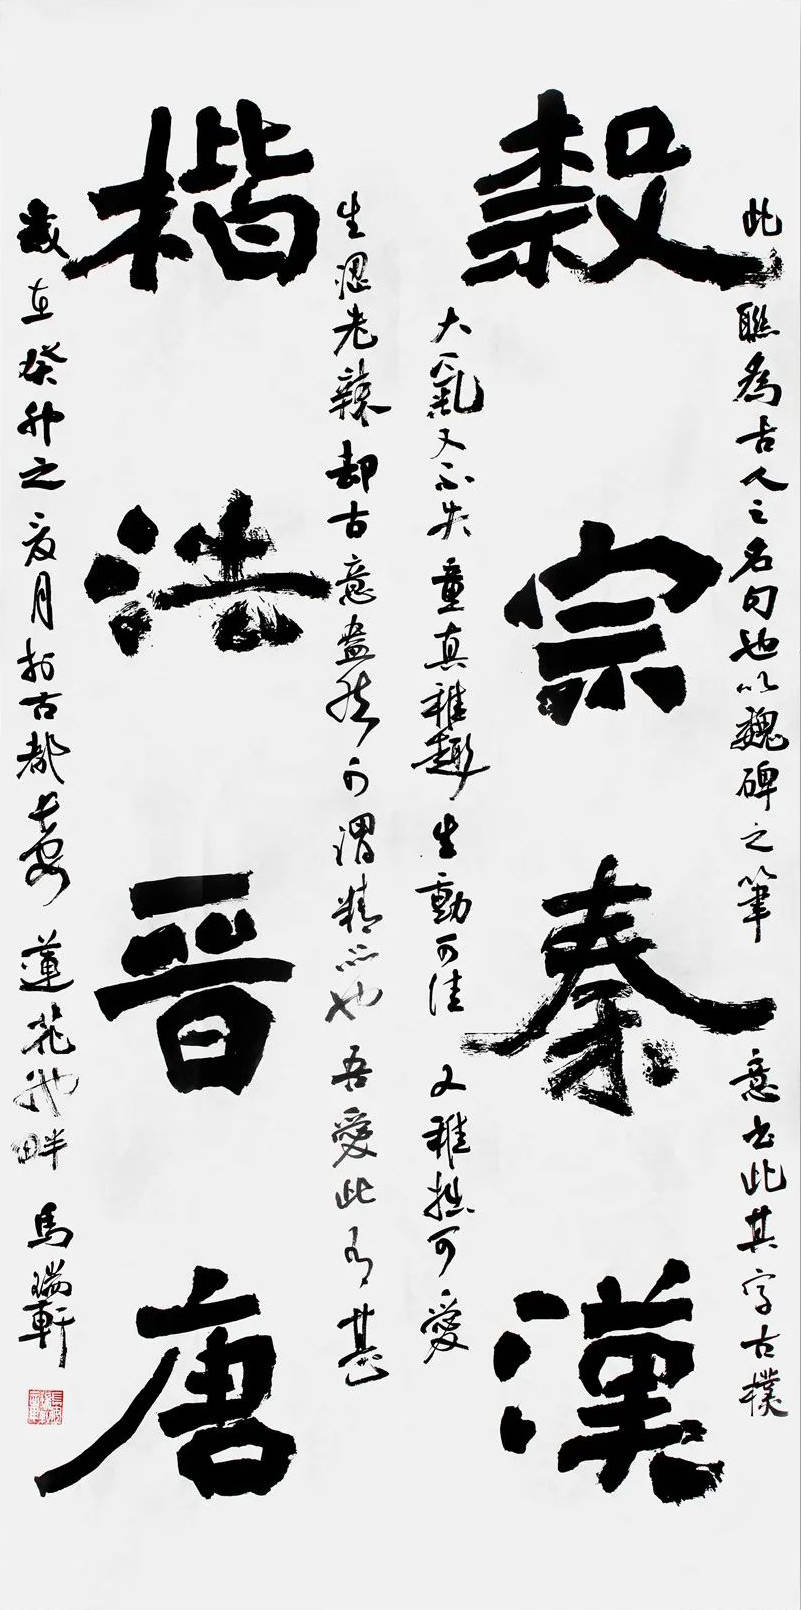 此聯為古人之名句也以魏碑之筆意書此其字古樸
隸宗秦漢
大氣又不失童真稚趣生動可佳又稚拙可愛
生澀老辣却古意盎然可謂精品也吾愛此有甚
楷法晉唐
歲在癸卯之夏月於古都長安蓮花池畔馬瑞軒